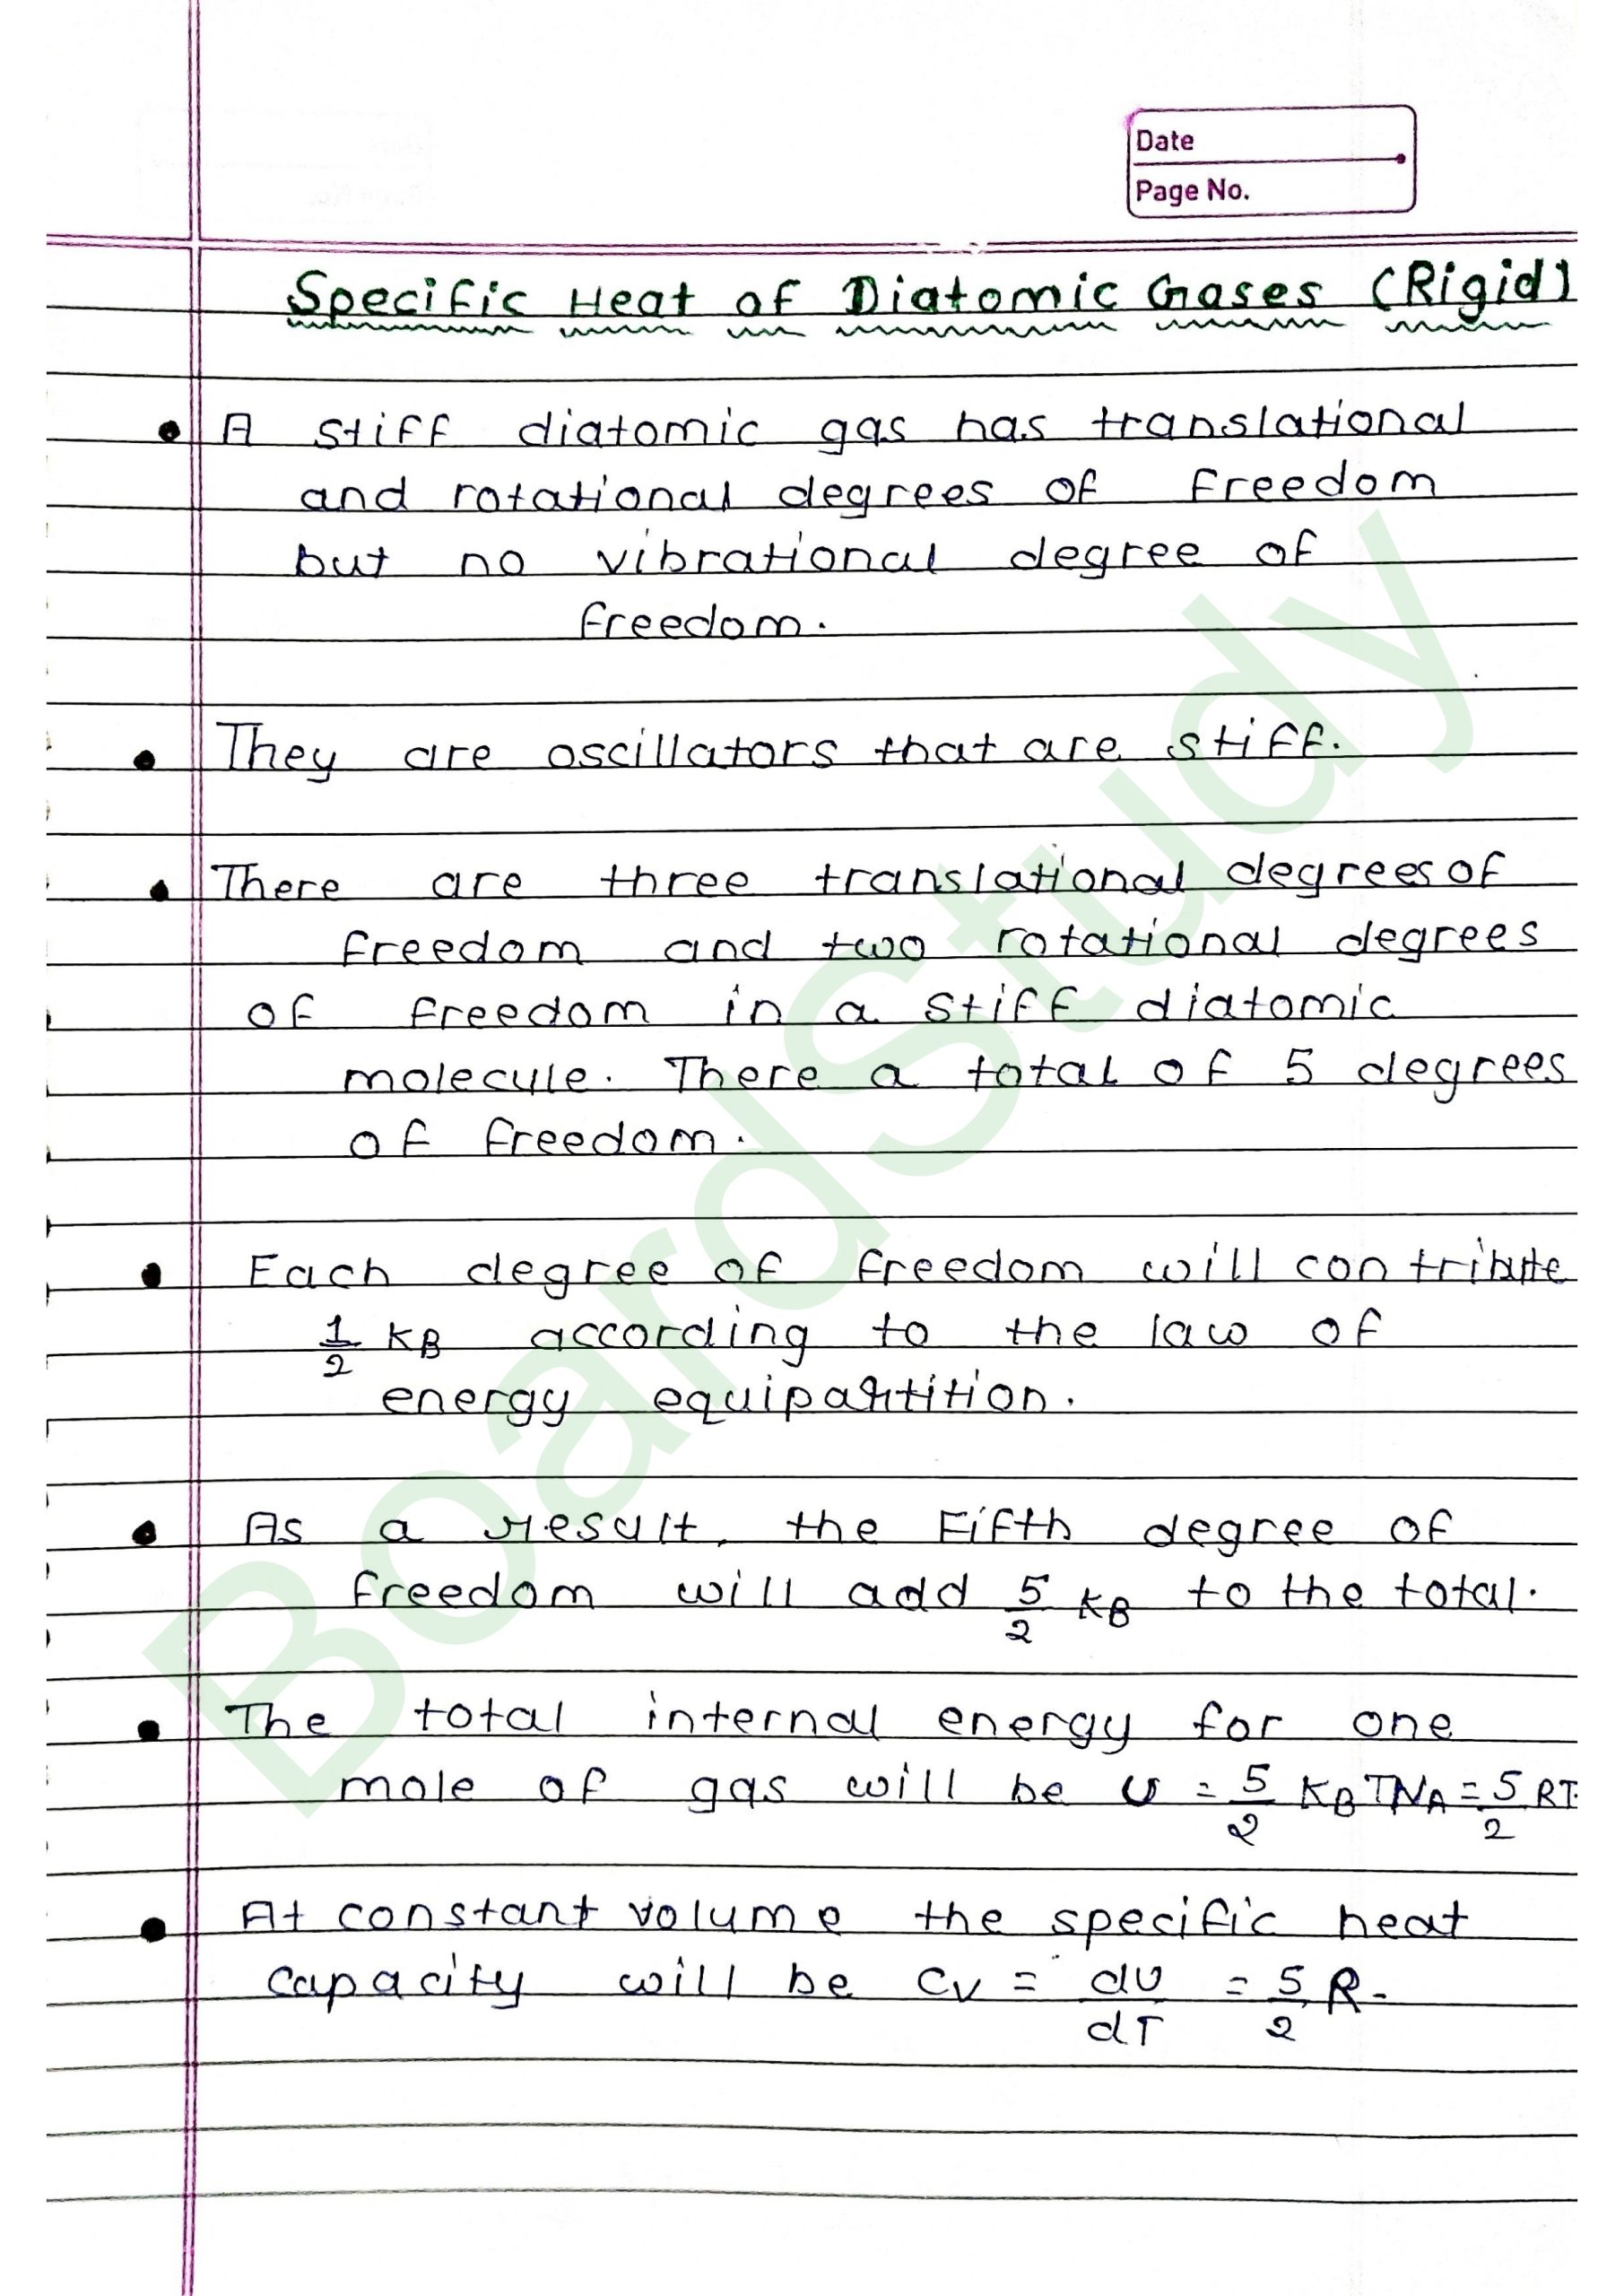 Date
Page No.
Specific Heat of Diatomic Gases (Rigid)
• A stiff diatomic gas has translational
and rotational degrees of freedom
but no vibrational degree of
freedom.
• They are oscillators that are stiff.
• There are three translational degrees of
freedom and two rotational degrees
of freedom in a stiff diatomic
molecule. There a total of 5 degrees
of freedom.
• Each degree of freedom will contribute
1/2 KB according to the law of
energy equipartition.
• As a result, the Fifth degree of
freedom will add 5/2 KB to the total.
• The total internal energy for one
mole of gas will be U = 5/2 KBTNA = 5/2 RT.
• At constant volume the specific heat
capacity will be Cv = dU/dT = 5/2 R.
BoardStudy